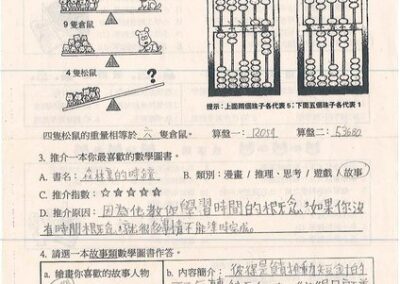 9 隻倉鼠
4 隻松鼠
?
提示：上面兩個珠子各代表 5；下面五個珠子各代表 1
四隻松鼠的重量相等於 六 隻倉鼠。 算盤一： 12051 算盤二： 53680
3. 推介一本你最喜歡的數學圖書。
A. 書名： 森林裏的時鐘 B. 類別：漫畫 / 推理．思考 / 遊戲 / 故事
C. 推介指數：☆☆☆☆☆
D. 推介原因： 因為他教你學習時間的概念，如果你沒
有時間概念 就很多事情不能準時完成。
4. 請選一本故事類數學圖書作答。
a. 繪畫你喜歡的故事人物 b. 內容簡介：